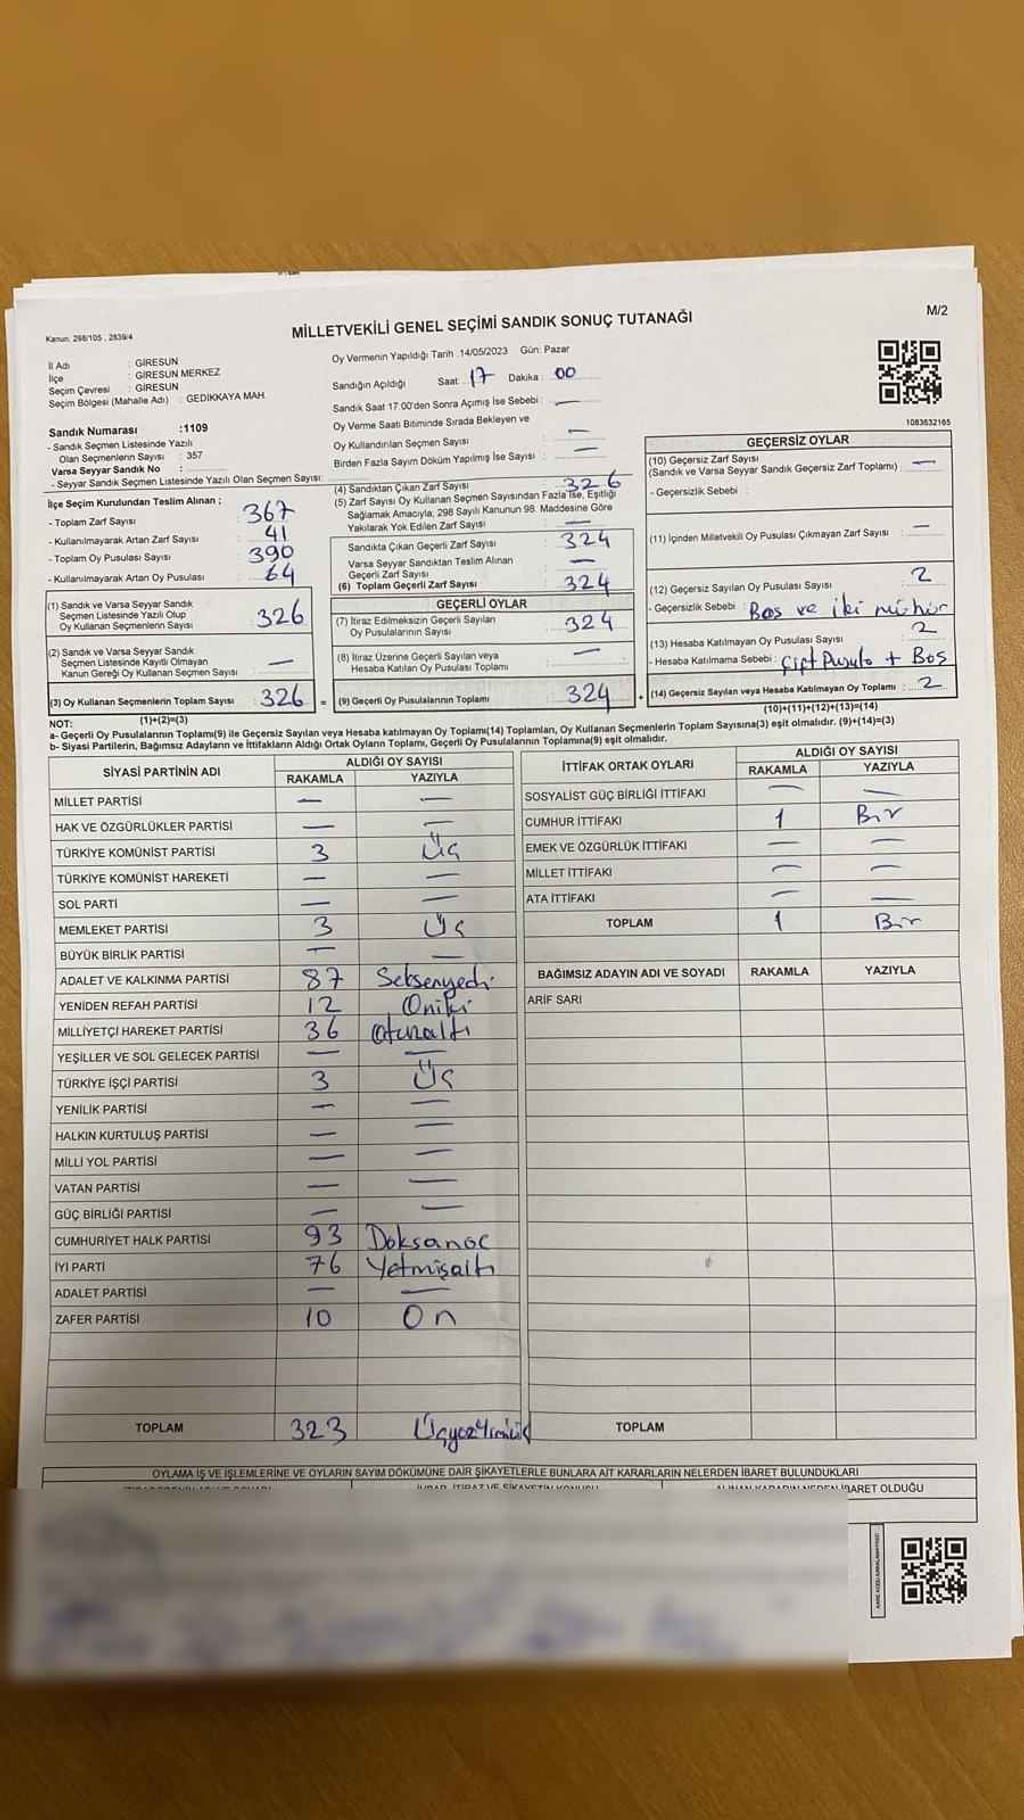 M/2
Kanun: 298/105 , 2839/4
MİLLETVEKİLİ GENEL SEÇİMİ SANDIK SONUÇ TUTANAĞI
İl Adı : GİRESUN
İlçe : GİRESUN MERKEZ
Seçim Çevresi : GİRESUN
Seçim Bölgesi (Mahalle Adı) : GEDİKKAYA MAH.
Sandık Numarası :1109
- Sandık Seçmen Listesinde Yazılı
Olan Seçmenlerin Sayısı : 357
Varsa Seyyar Sandık No :
- Seyyar Sandık Seçmen Listesinde Yazılı Olan Seçmen Sayısı:
Oy Vermenin Yapıldığı Tarih :14/05/2023 Gün: Pazar
Sandığın Açıldığı Saat: 17 Dakika : 00
Sandık Saat 17:00'den Sonra Açımış İse Sebebi : —
Oy Verme Saati Bitiminde Sırada Bekleyen ve
Oy Kullandırılan Seçmen Sayısı : —
Birden Fazla Sayım Döküm Yapılmış İse Sayısı : —
1083632165
İlçe Seçim Kurulundan Teslim Alınan ;
- Toplam Zarf Sayısı : 367
- Kullanılmayarak Artan Zarf Sayısı : 41
- Toplam Oy Pusulası Sayısı : 390
- Kullanılmayarak Artan Oy Pusulası : 64
(1) Sandık ve Varsa Seyyar Sandık
Seçmen Listesinde Yazılı Olup
Oy Kullanan Seçmenlerin Sayısı : 326
(2) Sandık ve Varsa Seyyar Sandık
Seçmen Listesinde Kayıtlı Olmayan
Kanun Gereği Oy Kullanan Seçmen Sayısı : —
(3) Oy Kullanan Seçmenlerin Toplam Sayısı : 326 =
(4) Sandıktan Çıkan Zarf Sayısı : 326
(5) Zarf Sayısı Oy Kullanan Seçmen Sayısından Fazla İse, Eşitliği
Sağlamak Amacıyla, 298 Sayılı Kanunun 98. Maddesine Göre
Yakılarak Yok Edilen Zarf Sayısı : —
Sandıkta Çıkan Geçerli Zarf Sayısı : 324
Varsa Seyyar Sandıktan Teslim Alınan
Geçerli Zarf Sayısı : —
(6) Toplam Geçerli Zarf Sayısı : 324
GEÇERLİ OYLAR
(7) İtiraz Edilmeksizin Geçerli Sayılan
Oy Pusulalarının Sayısı : 324
(8) İtiraz Üzerine Geçerli Sayılan veya
Hesaba Katılan Oy Pusulası Toplamı : —
(9) Geçerli Oy Pusulalarının Toplamı : 324 +
GEÇERSİZ OYLAR
(10) Geçersiz Zarf Sayısı : —
(Sandık ve Varsa Seyyar Sandık Geçersiz Zarf Toplamı)
- Geçersizlik Sebebi :
(11) İçinden Milletvekili Oy Pusulası Çıkmayan Zarf Sayısı : —
(12) Geçersiz Sayılan Oy Pusulası Sayısı : 2
- Geçersizlik Sebebi : Boş ve iki mühür
(13) Hesaba Katılmayan Oy Pusulası Sayısı : 2
- Hesaba Katılmama Sebebi : Çift Pusula + Boş
(14) Geçersiz Sayılan veya Hesaba Katılmayan Oy Toplamı : 2
(1)+(2)=(3)
(10)+(11)+(12)+(13)=(14)
NOT:
a- Geçerli Oy Pusulasının Toplamı(9) ile Geçersiz Sayılan veya Hesaba katılmayan Oy Toplamı(14) Toplamları, Oy Kullanan Seçmenlerin Toplam Sayısına(3) eşit olmalıdır. (9)+(14)=(3)
b- Siyasi Partilerin, Bağımsız Adayların ve İttifakların Aldığı Ortak Oyların Toplamı, Geçerli Oy Pusulalarının Toplamına(9) eşit olmalıdır.
SİYASİ PARTİNİN ADI ALDIĞI OY SAYISI
RAKAMLA YAZIYLA
MİLLET PARTİSİ — —
HAK VE ÖZGÜRLÜKLER PARTİSİ — —
TÜRKİYE KOMÜNİST PARTİSİ 3 Üç
TÜRKİYE KOMÜNİST HAREKETİ — —
SOL PARTİ — —
MEMLEKET PARTİSİ 3 Üç
BÜYÜK BİRLİK PARTİSİ — —
ADALET VE KALKINMA PARTİSİ 87 Seksenyedi
YENİDEN REFAH PARTİSİ 12 Oniki
MİLLİYETÇİ HAREKET PARTİSİ 36 Otuzaltı
YEŞİLLER VE SOL GELECEK PARTİSİ — —
TÜRKİYE İŞÇİ PARTİSİ 3 Üç
YENİLİK PARTİSİ — —
HALKIN KURTULUŞ PARTİSİ — —
MİLLİ YOL PARTİSİ — —
VATAN PARTİSİ — —
GÜÇ BİRLİĞİ PARTİSİ — —
CUMHURİYET HALK PARTİSİ 93 Doksanüç
İYİ PARTİ 76 Yetmişaltı
ADALET PARTİSİ — —
ZAFER PARTİSİ 10 On
TOPLAM 323
İTTİFAK ORTAK OYLARI ALDIĞI OY SAYISI
RAKAMLA YAZIYLA
SOSYALİST GÜÇ BİRLİĞİ İTTİFAKI — —
CUMHUR İTTİFAKI 1 Bir
EMEK VE ÖZGÜRLÜK İTTİFAKI — —
MİLLET İTTİFAKI — —
ATA İTTİFAKI — —
TOPLAM 1 Bir
BAĞIMSIZ ADAYIN ADI VE SOYADI RAKAMLA YAZIYLA
ARİF SARI
TOPLAM
OYLAMA İŞ VE İŞLEMLERİNE VE OYLARIN SAYIM DÖKÜMÜNE DAİR ŞİKAYETLERLE BUNLARA AİT KARARLARIN NELERDEN İBARET BULUNDUKLARI
İBARET OLDUĞU